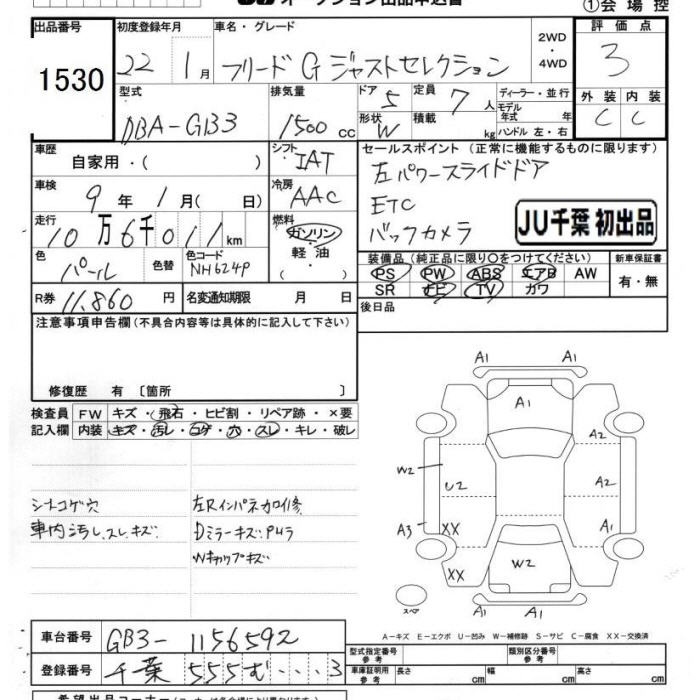 オークション出品申込書
①会場控
出品番号
1530
初度登録年月
22 1月
車名・グレード
フリード G ジャストセレクション
2WD
・
4WD
評価点
3
型式
DBA-GB3
排気量
1500 cc
ドア 5
形状 W
定員 7人
積載 kg
ディーラー・並行
モデル年式 年
ハンドル 左・右
外装 内装
C C
車歴
自家用・( )
シフト
IAT
セールスポイント (正常に機能するものに限ります)
左パワースライドドア
ETC
バックカメラ
JU千葉 初出品
車検
9年 1月(日)
冷房
AAC
走行
10万6千011km
燃料
ガソリン
軽油
・( )
色
パール
色替
色コード
NH624P
装備品 (純正品に限り○をつけてください)
PS PW ABS エアB AW
SR ナビ TV カワ
新車保証書
有・無
R券 11,860円
名変通知期限 月 日
後日品
注意事項申告欄 (不具合内容等は具体的に記入して下さい)
修復歴 有 〔箇所 〕
検査員
記入欄
FW キズ・飛石・ヒビ割・リペア跡・×要
内装 キズ・汚レ・コゲ・穴・スレ・キレ・破レ
シートコゲ穴
車内汚レ、スレ、キズ
左Rインパネカロ修
Dミラーキズ、PHラ
Wキャップキズ
A1 A1
A1
A2
W2 U2 A2
A3 XX A1
W2
XX
スペア
A1 A1
A-キズ E-エクボ U-凹み W-補修跡 S-サビ C-腐食 XX-交換済
車台番号 GB3-1156592
登録番号 千葉 555 む ・・・3
型式指定番号 参考
類別区分番号 参考
車庫証明用 参考 長さ cm 幅 cm 高さ cm
希望出品コーナー